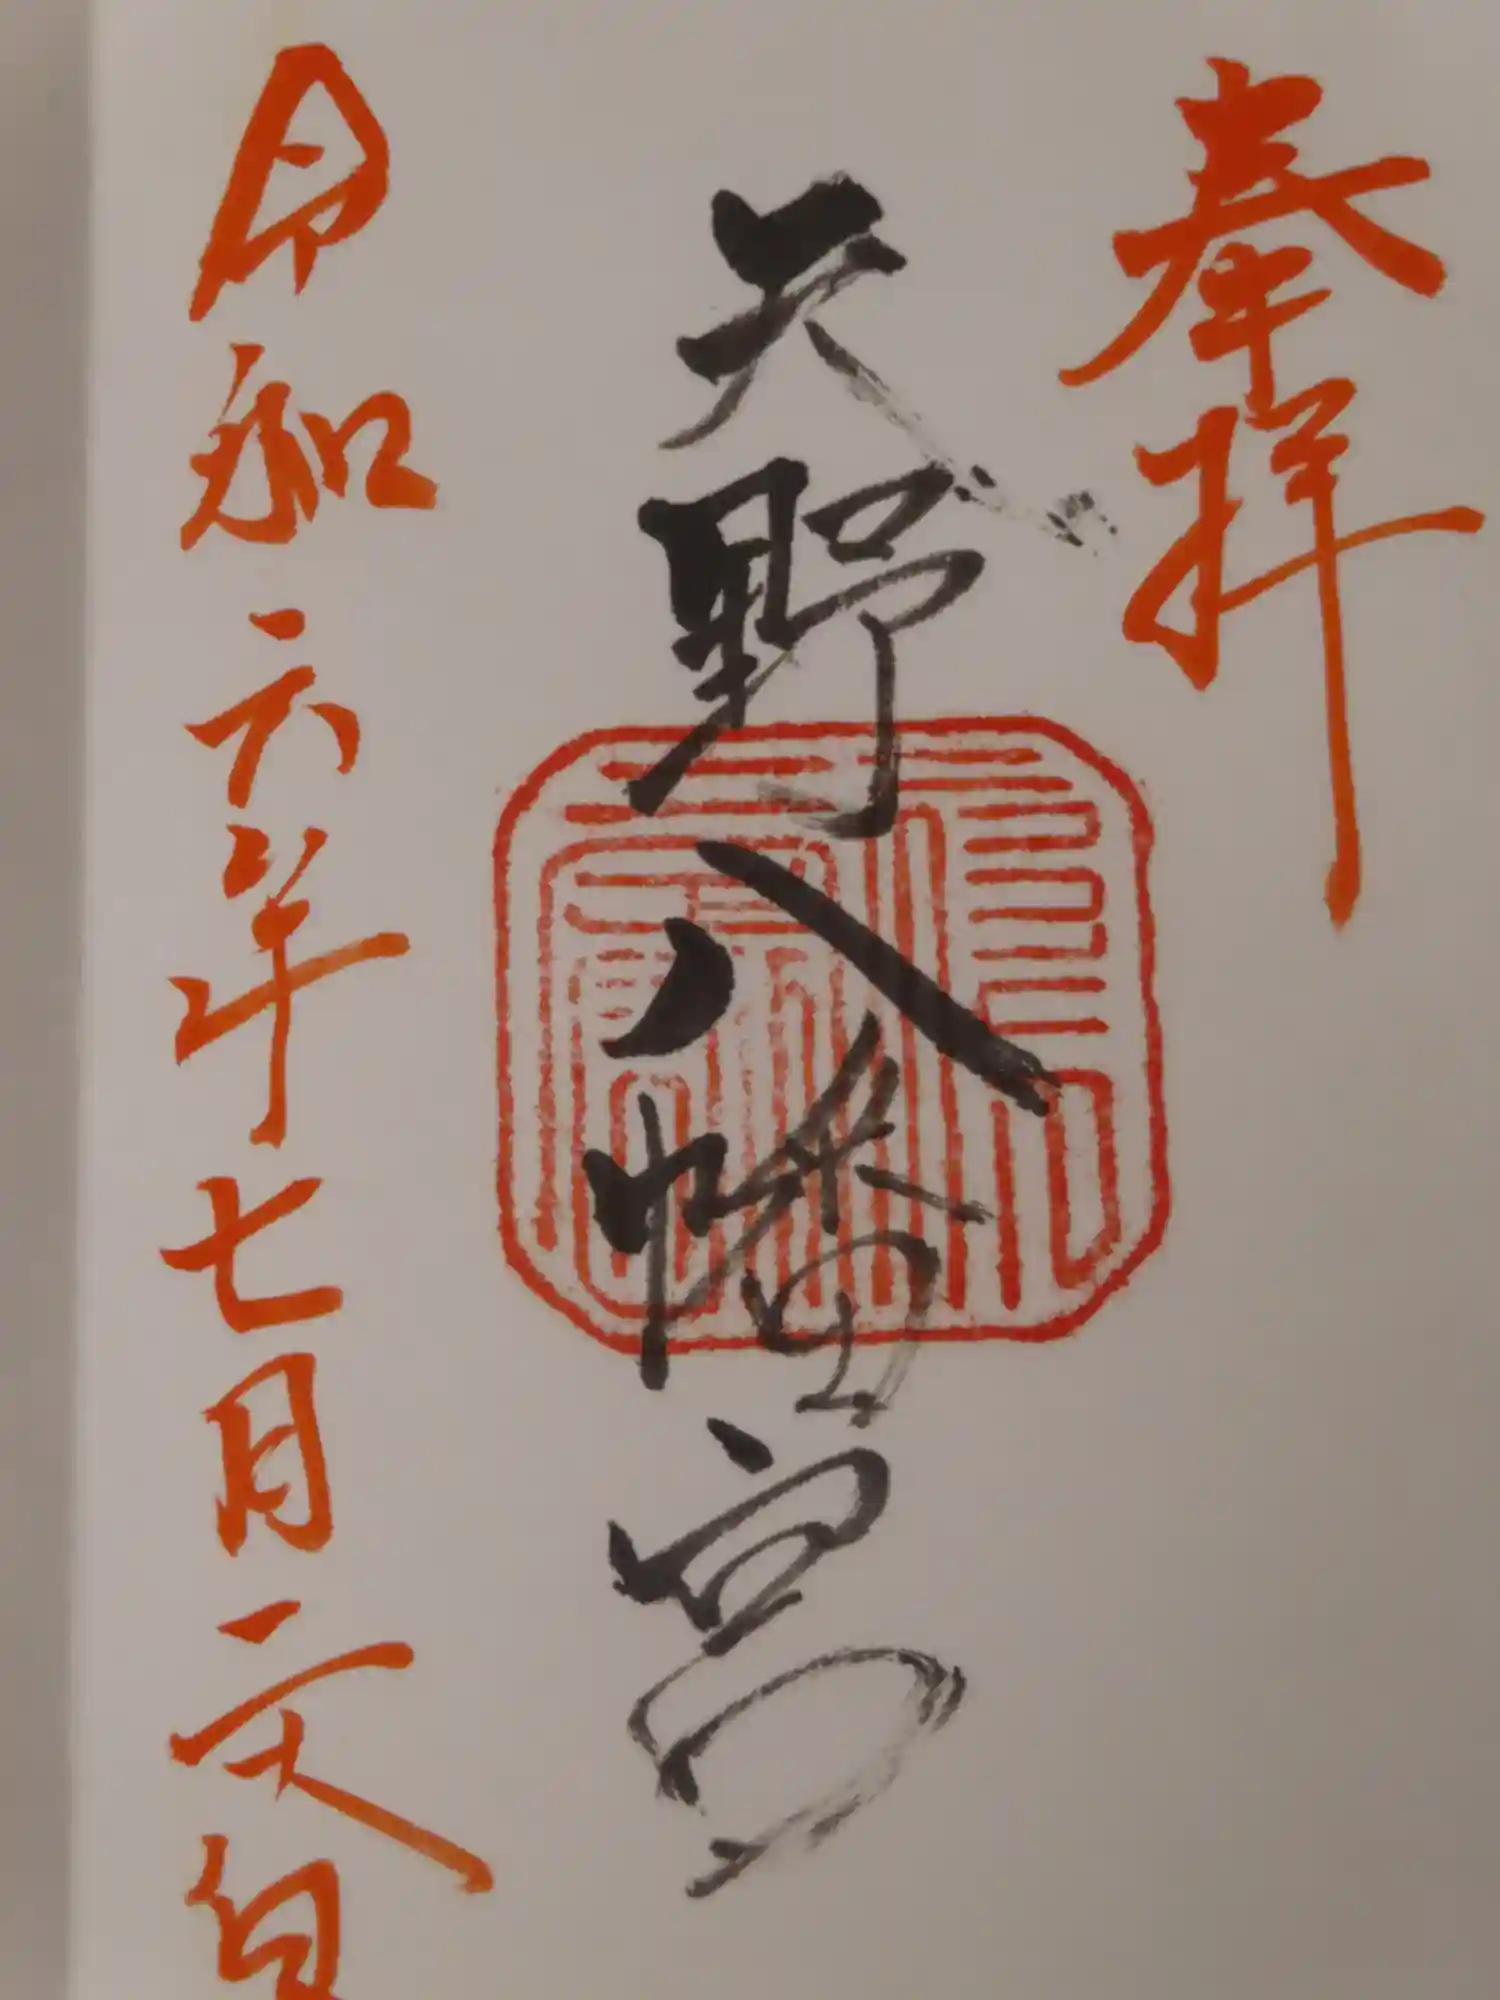 奉拝
天野八幡宮
令和六年七月日